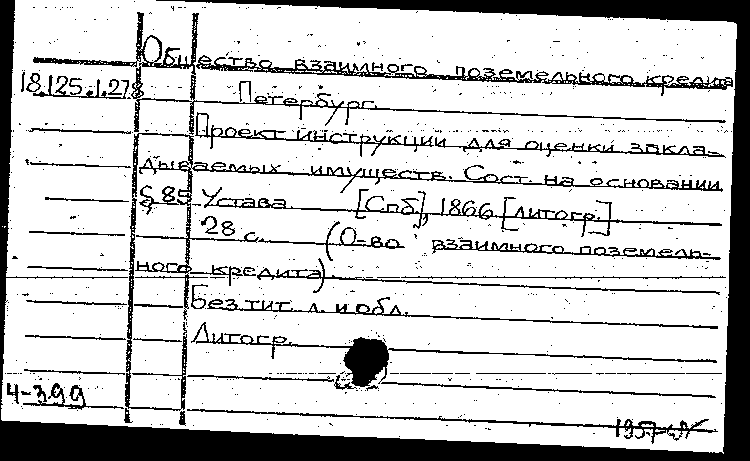 Общество взаимного поземельного кредита
18.125.1.278
Петербург.
Проект инструкции для оценки закла-
дываемых имуществ. Сост. на основании
§ 85 Устава. [Спб.], 1866 [литогр.]
28 с. (О-во взаимного поземель-
ного кредита)
Без тит. л. и обл.
Литогр.
4-399
1957